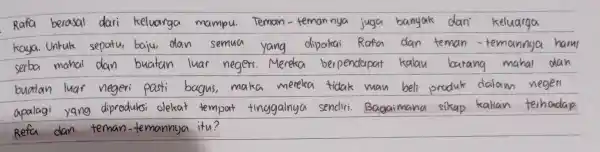 Rafa berasal dari keluarga mampu. Teman-teman nya juga banyak dari keluarga
kaya. Untuk sepatu, baju, dan semua yang dipakai Rafa dan teman-temannya harus
serba mahal dan buatan luar negeri. Mereka berpendapat kalau barang mahal dan
buatan luar negeri pasti bagus, maka mereka tidak mau beli produk dalam negeri
apalagi yang diproduksi dekat tempat tinggalnya sendiri. Bagaimana sikap kalian terhadap
Refa dan teman-temannya itu?